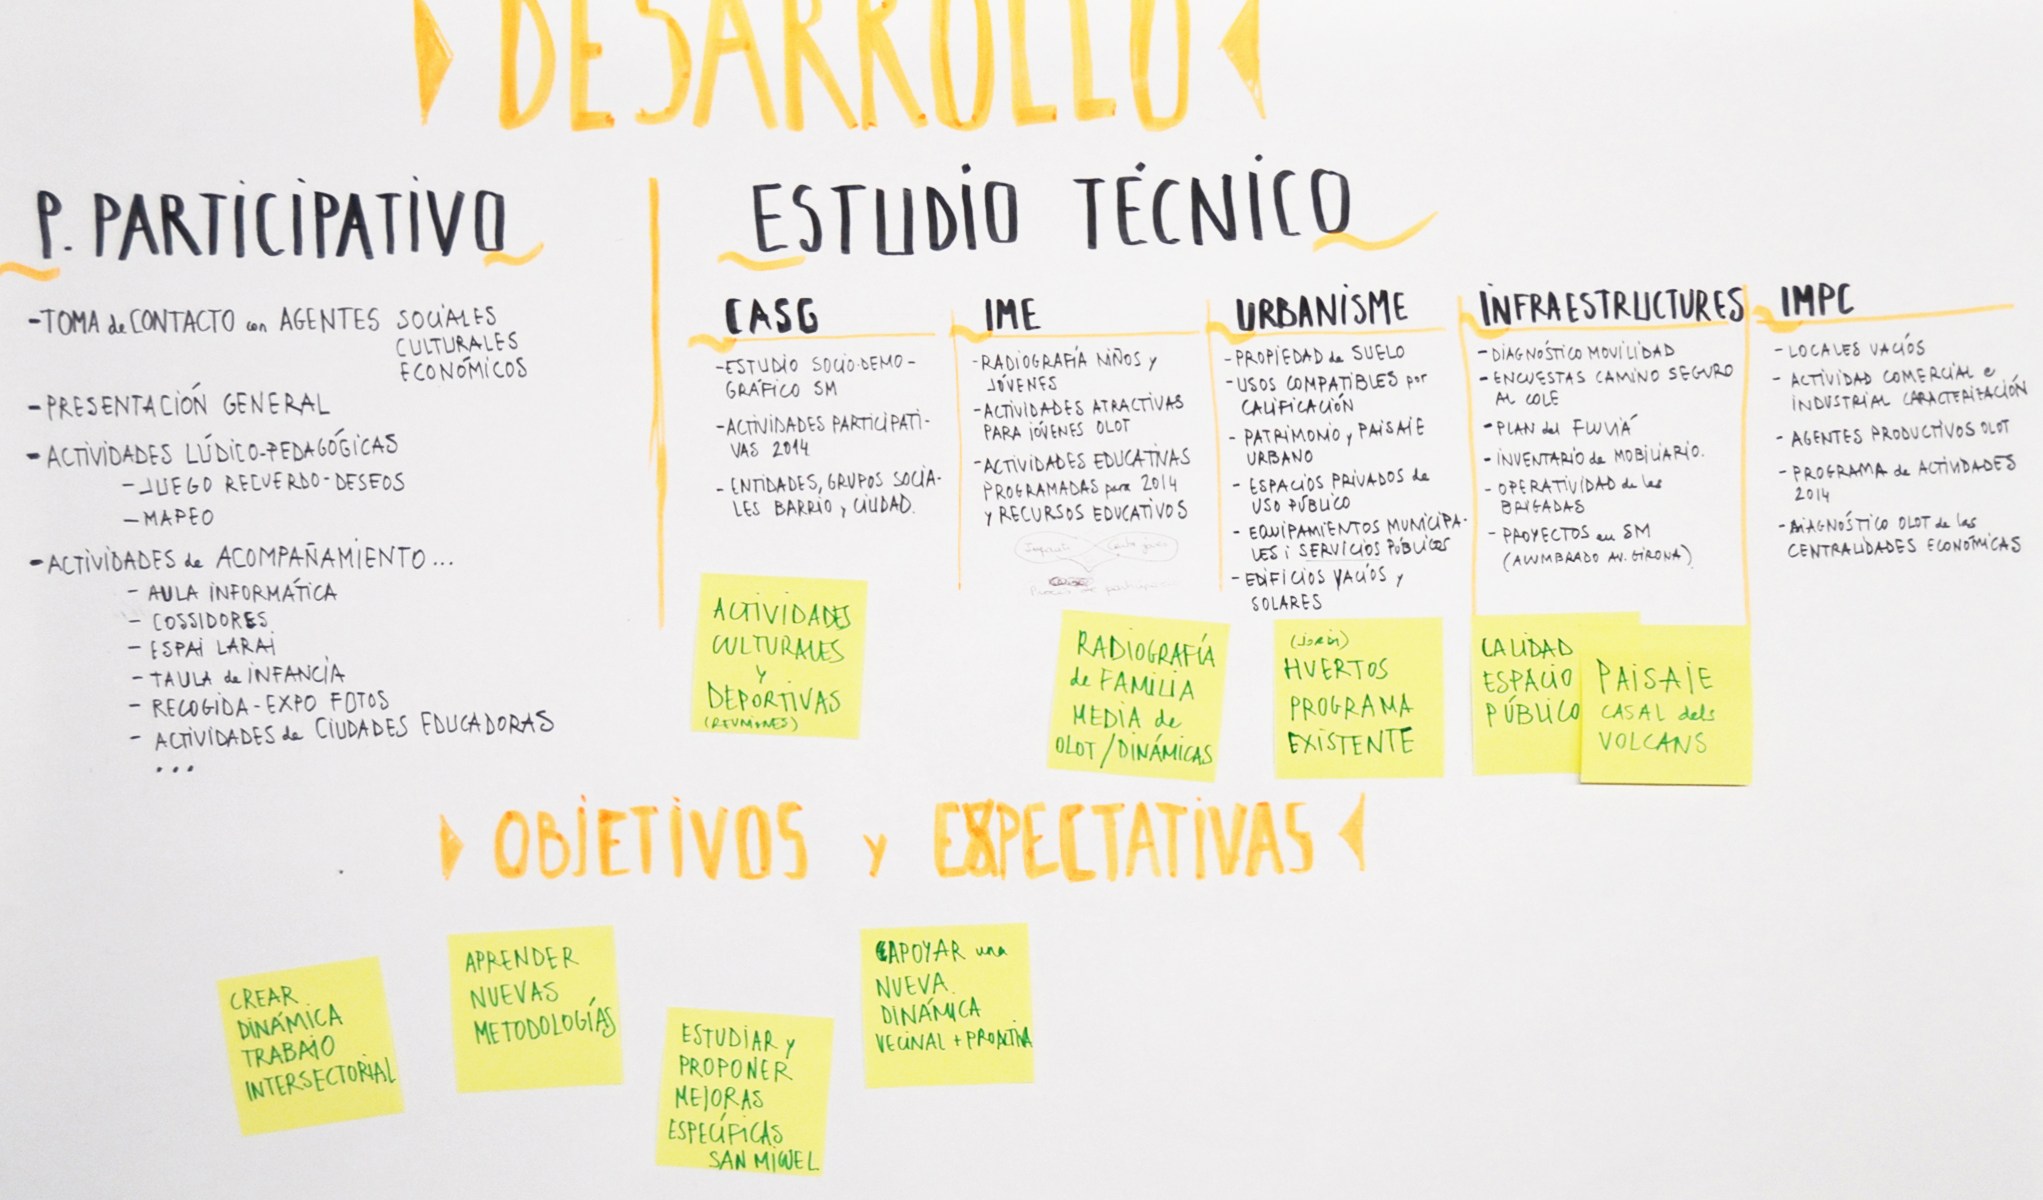 DESARROLLO
P. PARTICIPATIVO
- TOMA de CONTACTO con AGENTES SOCIALES
CULTURALES
ECONÓMICOS
- PRESENTACIÓN GENERAL
- ACTIVIDADES LÚDICO-PEDAGÓGICAS
- JUEGO RECUERDO-DESEOS
- MAPEO
- ACTIVIDADES de ACOMPAÑAMIENTO...
- AULA INFORMÁTICA
- COSSIDORES
- ESPAI LARAI
- TAULA de INFANCIA
- RECOGIDA-EXPO FOTOS
- ACTIVIDADES de CIUDADES EDUCADORAS
...
ESTUDIO TÉCNICO
CASG
- ESTUDIO SOCIO-DEMO-
GRÁFICO SM
- ACTIVIDADES PARTICIPATI-
VAS 2014
- ENTIDADES, GRUPOS SOCIA-
LES BARRIO y CIUDAD.
ACTIVIDADES
CULTURALES
y
DEPORTIVAS
(REUNIONES)
IME
- RADIOGRAFÍA NIÑOS y
JÓVENES
- ACTIVIDADES ATRACTIVAS
PARA JÓVENES OLOT
- ACTIVIDADES EDUCATIVAS
PROGRAMADAS para 2014
y RECURSOS EDUCATIVOS
RADIOGRAFÍA
de FAMILIA
MEDIA de
OLOT/DINÁMICAS
URBANISME
- PROPIEDAD de SUELO
- USOS COMPATIBLES por
CALIFICACIÓN
- PATRIMONIO y PAISAJE
URBANO
- ESPACIOS PRIVADOS de
USO PÚBLICO
- EQUIPAMIENTOS MUNICIPA-
LES i SERVICIOS PÚBLICOS
- EDIFICIOS VACÍOS y
SOLARES
(JORDI)
HUERTOS
PROGRAMA
EXISTENTE
INFRAESTRUCTURES
- DIAGNÓSTICO MOVILIDAD
- ENCUESTAS CAMINO SEGURO
AL COLE
- PLAN del FLUVIÁ
- INVENTARIO de MOBILIARIO.
- OPERATIVIDAD de las
BRIGADAS
- PROYECTOS en SM
(ALUMBRADO AV. GIRONA)
CALIDAD
ESPACIO
PÚBLICO
PAISAJE
CASAL dels
VOLCANS
IMPC
- LOCALES VACÍOS
- ACTIVIDAD COMERCIAL e
INDUSTRIAL CARACTERIZACIÓN
- AGENTES PRODUCTIVOS OLOT
- PROGRAMA de ACTIVIDADES
2014
- DIAGNÓSTICO OLOT de las
CENTRALIDADES ECONÓMICAS
OBJETIVOS y EXPECTATIVAS
CREAR
DINÁMICA
TRABAJO
INTERSECTORIAL
APRENDER
NUEVAS
METODOLOGÍAS
ESTUDIAR y
PROPONER
MEJORAS
ESPECÍFICAS
SAN MIGUEL
APOYAR una
NUEVA
DINÁMICA
VECINAL + PROACTIVA